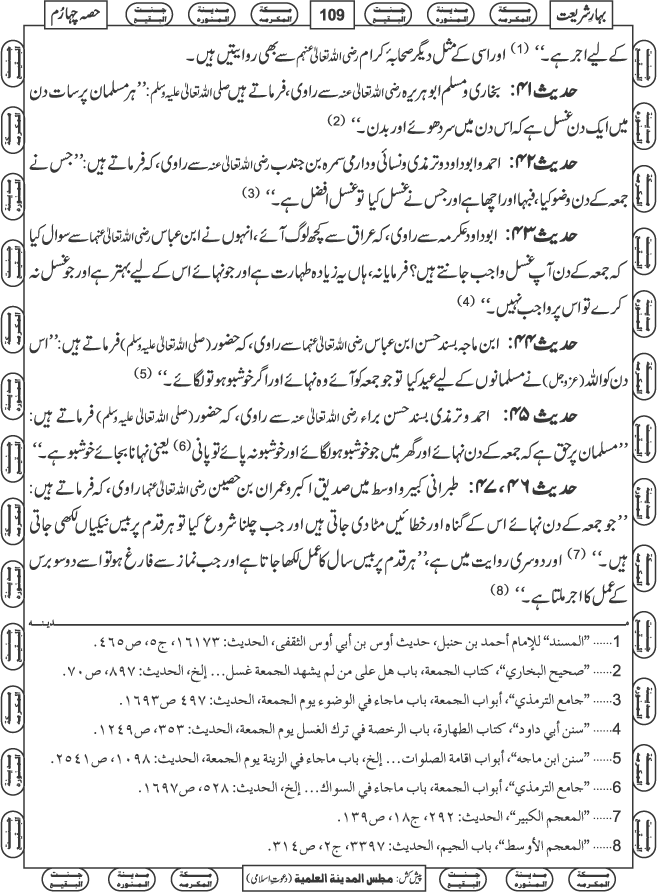 بہارِ شریعت
109
حصہ چہارم
کے لیے اجر ہے۔‘‘ (1) اور اسی کے مثل دیگر صحابۂ کرام رضی اللہ تعالیٰ عنہم سے بھی روایتیں ہیں۔
حدیث ۴۱: بخاری و مسلم ابو ہریرہ رضی اللہ تعالیٰ عنہ سے راوی، فرماتے ہیں صلی اللہ تعالیٰ علیہ وسلم: ’’ہر مسلمان پر سات دن
میں ایک دن غسل ہے کہ اس دن میں سر دھوئے اور بدن۔‘‘ (2)
حدیث ۴۲: احمد و ابوداود و ترمذی و نسائی و دارمی سمرہ بن جندب رضی اللہ تعالیٰ عنہ سے راوی، کہ فرماتے ہیں: ’’جس نے
جمعہ کے دن وضو کیا، فبہا اور اچھا ہے اور جس نے غسل کیا تو غسل افضل ہے۔‘‘ (3)
حدیث ۴۳: ابوداود عکرمہ سے راوی، کہ عراق سے کچھ لوگ آئے، انہوں نے ابن عباس رضی اللہ تعالیٰ عنہما سے سوال کیا
کہ جمعہ کے دن آپ غسل واجب جانتے ہیں؟ فرمایا نہ، ہاں یہ زیادہ طہارت ہے اور جو نہائے اس کے لیے بہتر ہے اور جو غسل نہ
کرے تو اس پر واجب نہیں۔‘‘ (4)
حدیث ۴۴: ابن ماجہ بسند حسن ابن عباس رضی اللہ تعالیٰ عنہما سے راوی، کہ حضور (صلی اللہ تعالیٰ علیہ وسلم) فرماتے ہیں: ’’اس
دن کو اللہ (عزوجل) نے مسلمانوں کے لیے عید کیا تو جو جمعہ کو آئے وہ نہائے اور اگر خوشبو ہو تو لگائے۔‘‘ (5)
حدیث ۴۵: احمد و ترمذی بسند حسن براء رضی اللہ تعالیٰ عنہ سے راوی، کہ حضور (صلی اللہ تعالیٰ علیہ وسلم) فرماتے ہیں:
’’مسلمان پر حق ہے کہ جمعہ کے دن نہائے اور گھر میں جو خوشبو ہو لگائے اور خوشبو نہ پائے تو پانی (6) یعنی نہانا بجائے خوشبو ہے۔‘‘
حدیث ۴۶، ۴۷: طبرانی کبیر و اوسط میں صدیق اکبر و عمران بن حصین رضی اللہ تعالیٰ عنہما راوی، کہ فرماتے ہیں:
’’جو جمعہ کے دن نہائے اس کے گناہ اور خطائیں مٹا دی جاتی ہیں اور جب چلنا شروع کیا تو ہر قدم پر بیس نیکیاں لکھی جاتی
ہیں۔‘‘ (7) اور دوسری روایت میں ہے، ’’ہر قدم پر بیس سال کا عمل لکھا جاتا ہے اور جب نماز سے فارغ ہو تو اسے دو سو برس
کے عمل کا اجر ملتا ہے۔‘‘ (8)
مدينه
1...... ’’المسند‘‘ للإمام أحمد بن حنبل، حديث أوس بن أبي أوس الثقفى، الحديث: ١٦١٧٣، ج٥، ص٤٦٥.
2...... ’’صحيح البخاري‘‘، كتاب الجمعة، باب هل على من لم يشهد الجمعة غسل... إلخ، الحديث: ٨٩٧، ص٧٠.
3...... ’’جامع الترمذي‘‘، أبواب الجمعة، باب ماجاء في الوضوء يوم الجمعة، الحديث: ٤٩٧ ص١٦٩٣.
4...... ’’سنن أبي داود‘‘، كتاب الطهارة، باب الرخصة في ترك الغسل يوم الجمعة، الحديث: ٣٥٣، ص١٢٤٩.
5...... ’’سنن ابن ماجه‘‘، أبواب اقامة الصلوات... إلخ، باب ماجاء في الزينة يوم الجمعة، الحديث: ١٠٩٨، ص٢٥٤١.
6...... ’’جامع الترمذي‘‘، أبواب الجمعة، باب ماجاء في السواك... إلخ، الحديث: ٥٢٨، ص١٦٩٧.
7...... ’’المعجم الكبير‘‘، الحديث: ٢٩٢، ج١٨، ص١٣٩.
8...... ’’المعجم الأوسط‘‘، باب الجيم، الحديث: ٣٣٩٧، ج٢، ص٣١٤.
پیش کش: مجلس المدینة العلمیة (دعوتِ اسلامی)